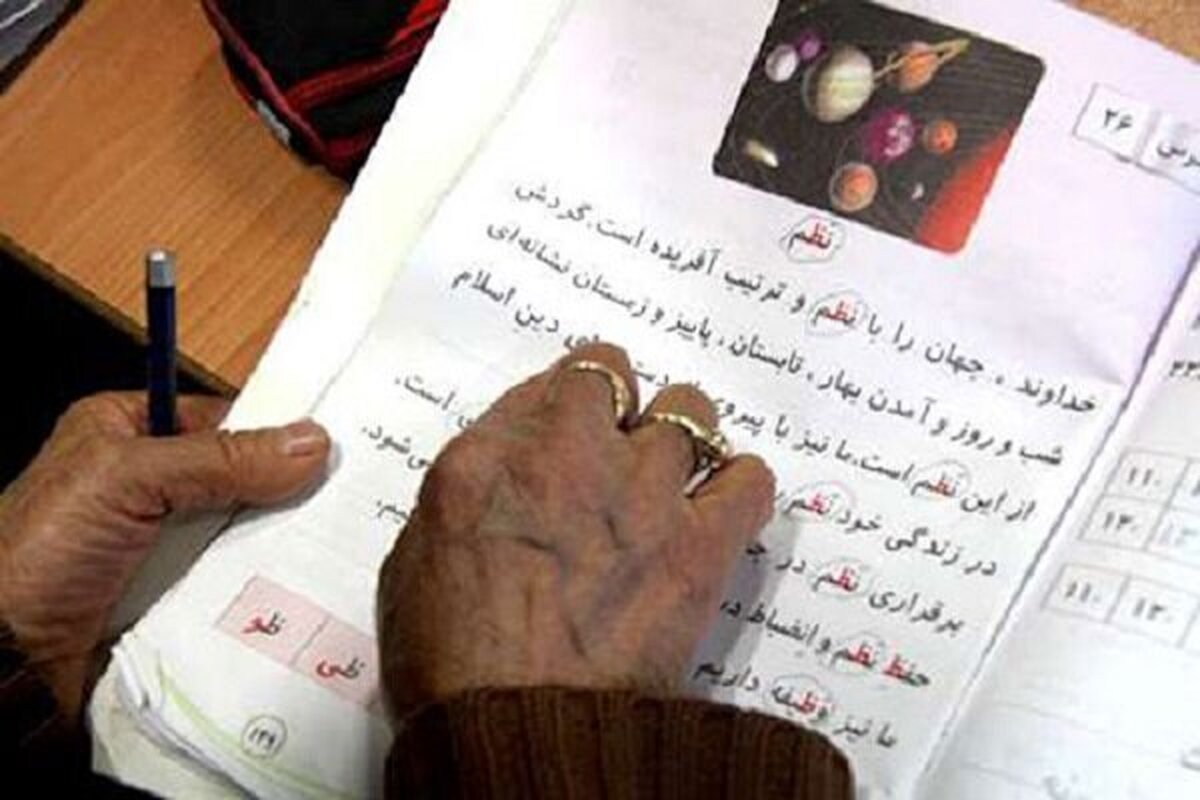 درس ۲۶
نظم
خداوند ، جهان را با نظم و ترتیب آفریده است. گردش
شب و روز و آمدن بهار ، تابستان ، پاییز و زمستان نشانه‌ای
از این نظم است. ما نیز با پیروی دین اسلام
در زندگی خود نظم است.
برقراری نظم در می‌شود.
حفظ نظم و انضباط
ما نیز وظیفه داریم
ظو
ظی
۱۲۹
۱۱۰
۱۲۰
۱۱۰ ۱۳۰